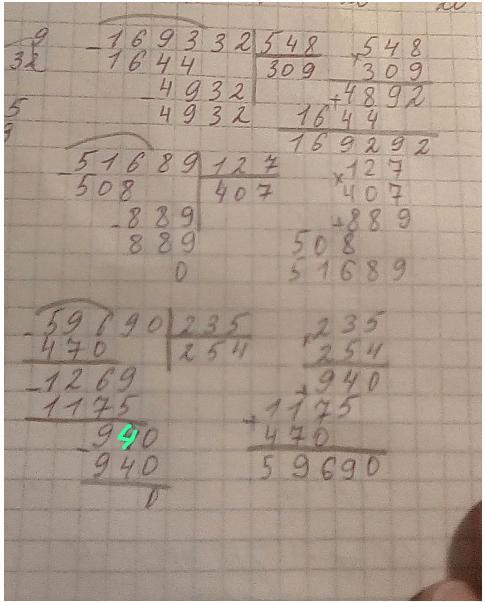 9
32
5
9
-169332|548
1644 309
-4932
4932
×548
309
+4892
1644
169292
-51689|127
508 407
-889
889
0
×127
407
+889
508
51689
-59690|235
470 254
-1269
1175
-940
940
0
×235
254
+940
+1175
470
59690